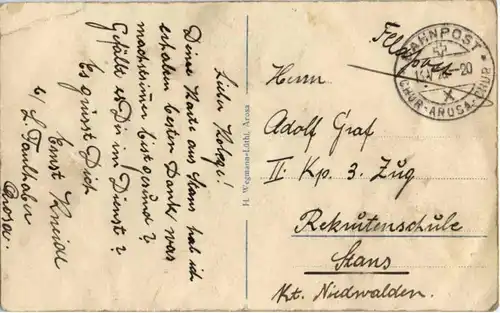 Lieber Kolege!
Deine Karte aus Stans hab ich
erhalten besten Dank was
machst immer bist gesund?
Gefällt es Dir im Dienst?
Es grüsst Dich
Ernst
b/ L. Faulhaber
Arosa.
H. Wegmann-Lüthi, Arosa
Feldpost
BAHNPOST
CHUR-AROSA-CHUR
Herrn
Adolf Graf
II. Kp. 3. Zug
Rekrutenschule
Stans
Kt. Niedwalden.